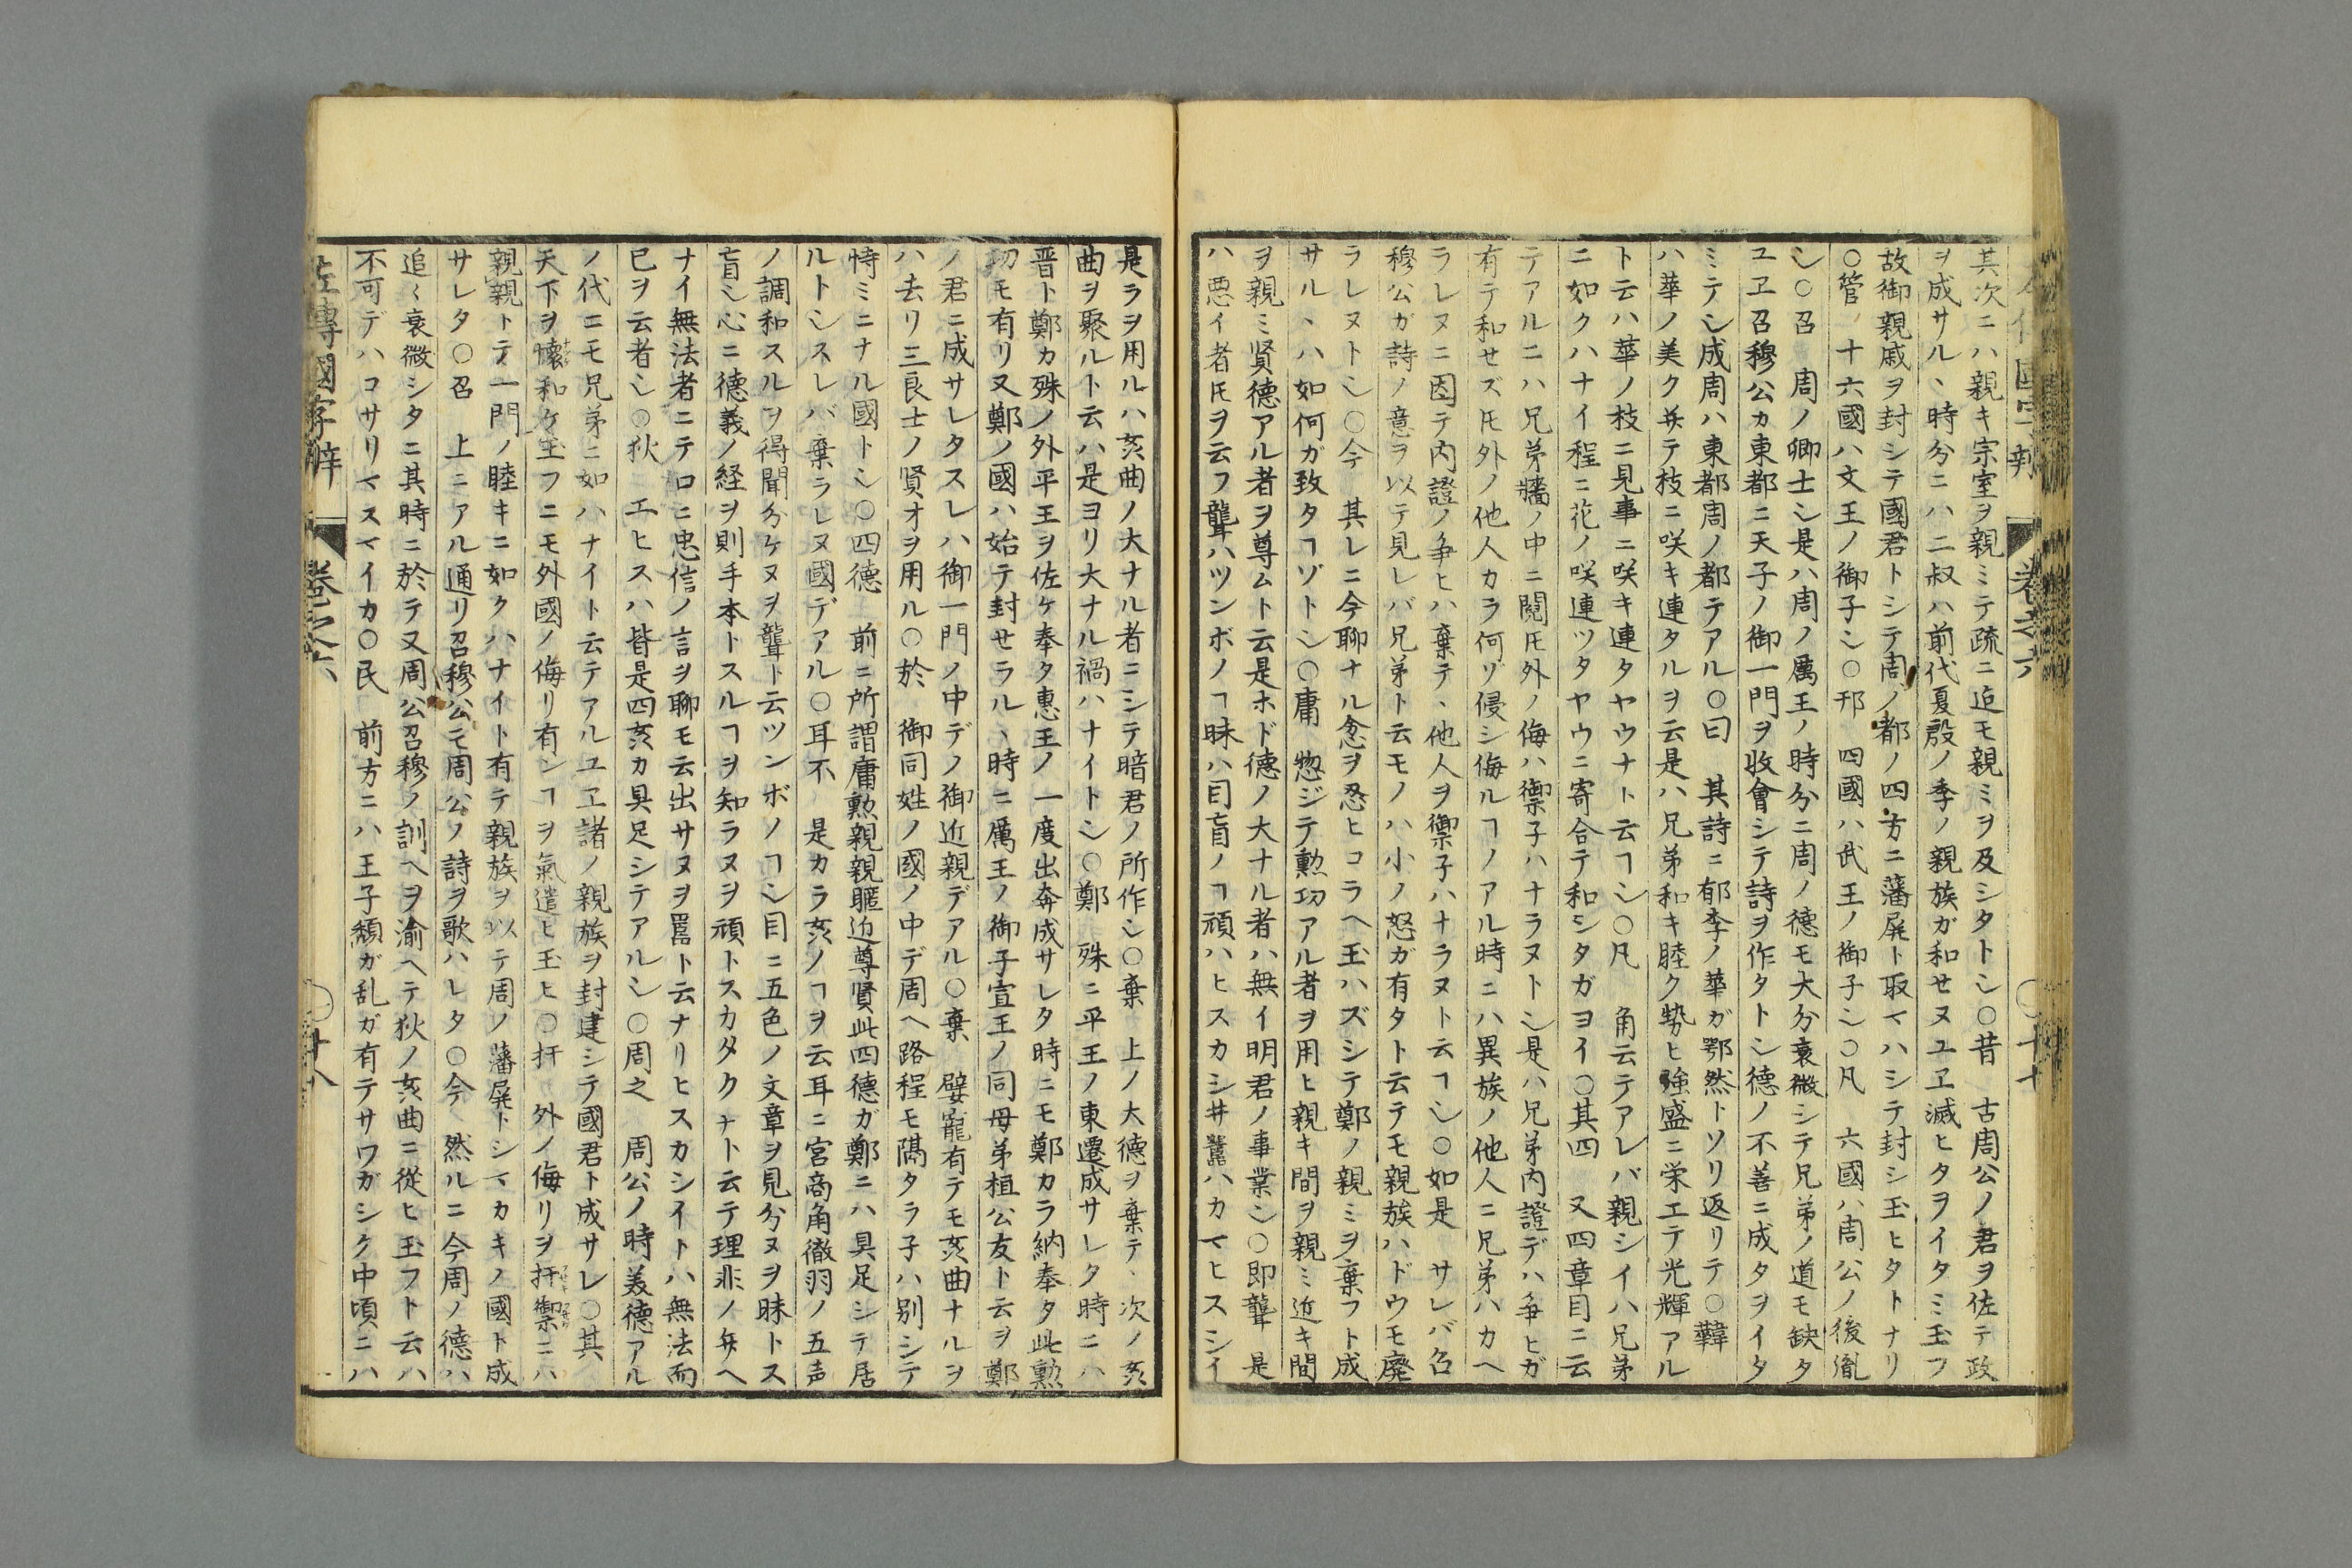 其次ニハ親キ宗室ヲ親ミテ疏ニ迨モ親ミヲ及シタトン○昔　古周公ノ君ヲ佐テ政
ヲ成サル、時分ニハ二叔ハ前代夏殷ノ季ノ親族ガ和セヌユヱ滅ヒタヲイタミ玉フ
故御親戚ヲ封シテ國君トシテ周ノ都ノ四方ニ藩屏ト取マハシテ封シ玉ヒタトナリ
○管　十六國ハ文王ノ御子ン○邘　四國ハ武王ノ御子ン○凡　六國ハ周公ノ後胤
ン○召　周ノ卿士ン是ハ周ノ厲王ノ時分ニ周ノ德モ大分衰微シテ兄弟ノ道モ缺タ
ユヱ召穆公カ東都ニ天子ノ御一門ヲ收會シテ詩ヲ作タトン德ノ不善ニ成タヲイタ
ミテン成周ハ東都周ノ都テアル○曰　其詩ニ郁李ノ華ガ鄂然トソリ返リテ○韡
ハ華ノ美ク并テ枝ニ咲キ連タルヲ云是ハ兄弟和キ睦ク勢ヒ強盛ニ栄エテ光輝アル
ト云ハ華ノ枝ニ見事ニ咲キ連タヤウナト云ヿン○凡　角云テアレバ親シイハ兄弟
ニ如クハナイ程ニ花ノ咲連ツタヤウニ寄合テ和シタガヨイ○其四　又四章目ニ云
テアルニハ兄弟牆ノ中ニ鬩𪜈外ノ侮ハ禦子ハナラヌトン是ハ兄弟内證デハ争ヒガ
有テ和セズ𪜈外ノ他人カラ何ゾ侵シ侮ルヿノアル時ニハ異族ノ他人ニ兄弟ハカヘ
ラレヌニ因テ内證ノ争ヒハ棄テ、他人ヲ禦子ハナラヌト云ヿン○如是　サレバ召
穆公ガ詩ノ意ヲ以テ見レバ兄弟ト云モノハ小ノ怒ガ有タト云テモ親族ハドウモ廢
ラレヌトン○今　其レニ今聊ナル忿ヲ忍ヒコラヘ玉ハズシテ鄭ノ親ミヲ棄フト成
サル、ハ如何ガ致タヿゾトン○庸　惣ジテ勲功アル者ヲ用ヒ親キ間ヲ親ミ近キ間
ヲ親ミ賢德アル者ヲ尊ムト云是ホド德ノ大ナル者ハ無イ明君ノ事業ン○即聾　是
ハ悪イ者𪜈ヲ云フ聾ハツンボノヿ昧ハ目盲ノヿ頑ハヒスカシ井嚚ハカマヒスシイ
是ラヲ用ルハ亥曲ノ大ナル者ニシテ暗君ノ所作ン○棄　上ノ大德ヲ棄テ、次ノ亥
曲ヲ聚ルト云ハ是ヨリ大ナル禍ハナイトン○鄭　殊ニ平王ノ東遷成サレタ時ニハ
晋ト鄭カ殊ノ外平王ヲ佐ケ奉タ惠王ノ一度出奔成サレタ時ニモ鄭カラ納奉タ此勲
功モ有リ又鄭ノ國ハ始テ封セラル、時ニ厲王ノ御子宣王ノ同母弟桓公友ト云ヲ鄭
ノ君ニ成サレタスレハ御一門ノ中デノ御近親デアル○棄　嬖寵有テモ亥曲ナルヲ
ハ去リ三良士ノ賢才ヲ用ル○於　御同姓ノ國ノ中デ周ヘ路程モ隔タラ子ハ别シテ
恃ミニナル國トン○四德　前ニ所謂庸勲親親暱近尊賢此四德ガ鄭ニハ具足シテ居
ルトンスレバ棄ラレヌ國デアル○耳不　是カラ亥ノヿヲ云耳ニ宮商角徵羽ノ五声
ノ調和スルヲ得聞分ケヌヲ聾ト云ツンボノヿン目ニ五色ノ文章ヲ見分ヌヲ昧トス
盲ン心ニ德義ノ経ヲ則手本トスルヿヲ知ラヌヲ頑トスカダクナト云テ理非ノ弁ヘ
ナイ無法者ニテロニ忠信ノ言ヲ聊モ云出サヌヲ嚚ト云ナリヒスカシイトハ無法而
已ヲ云者ン○狄　エヒスハ皆是四亥カ具足シテアルン○周之　周公ノ時美德アル
ノ代ニモ兄弟ニ如ハナイト云テアルユヱ諸ノ親族ヲ封建シテ國君ト成サレ○其
天下ヲ懷和ケ玉フニモ外國ノ侮リ有ンヿヲ氣遣ヒ玉ヒ○扞　外ノ侮リヲ扞禦ニハ
親親トテ一門ノ睦キニ如クハナイト有テ親族ヲ以テ周ノ藩屏トシマカキノ國ト成
サレタ○召　上ニアル通リ召穆公モ周公ノ詩ヲ歌ハレタ○今　然ルニ今周ノ德ハ
追〻衰微シタニ其時ニ於テ又周公召穆ノ訓ヘヲ渝ヘテ狄ノ亥曲ニ從ヒ玉フト云ハ
不可デハコサリマスマイカ○民　前方ニハ王子頽ガ乱ガ有テサワガシク中頃ニハ
左傳國字辯　卷之六　○十八